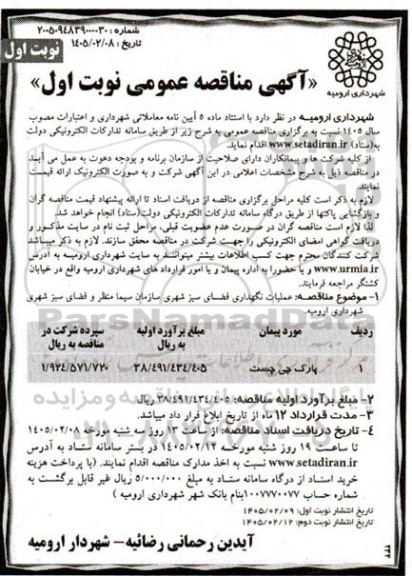 شماره : ۲۰۰۵۰۹۴۸۳۹۰۰۰۰۳۰
تاریخ : ۱۴۰۵/۰۲/۰۸
نوبت اول
شهرداری ارومیه
«آگهی مناقصه عمومی نوبت اول»
شهرداری ارومیه در نظر دارد با استناد ماده ۵ آیین نامه معاملاتی شهرداری و اعتبارات مصوب
سال ۱۴۰۵ نسبت به برگزاری مناقصه عمومی به شرح زیر از طریق سامانه تدارکات الکترونیکی دولت
به(ستاد) www.setadiran.ir اقدام نماید.
از کلیه شرکت ها و پیمانکاران دارای صلاحیت از سازمان برنامه و بودجه دعوت به عمل می آیـد
در مناقصه ذیل به شرح مشخصات اعلامی در این آگهی شرکت و به صورت الکترونیک ارائه قیمت
نمایند.
لازم به ذکر است کلیه مراحل برگزاری مناقصه از دریافت اسناد تا ارائه پیشنهاد قیمت مناقصه گران
و بازگشایی پاکتها از طریق درگاه سامانه تدارکات الکترونیکی دولت(ستاد) انجام خواهد شد.
لذا لازم است مناقصه گران در صورت عدم عضویت قبلی، مراحل ثبت نام در سایت مذکـور و
دریافت گواهی امضای الکترونیکی را جهـت شرکت در مناقصه محقق سازند. لازم به ذکر میباشد
شرکت کنندگان محترم جهت کسب اطلاعات بیشتر میتوانند به سایت شهرداری ارومیه به آدرس
www.urmia.ir و یا حضورا به اداره پیمان و یا امور قرارداد های شهرداری ارومیه واقع در خیابان
کشتگر مراجعه فرمایند.
۱- موضوع مناقصـه: عملیات نگهداری فضـای سبز شهری سازمان سیما منظر و فضای سبز شهری
شهرداری ارومیه.
ردیف مورد پیمان مبلغ برآورد اولیه به ریال سپرده شرکت در مناقصه به ریال
۱ پارک جی چست ۳۸/۴۹۱/۴۳۴/۴۰۵ ۱/۹۲۴/۵۷۱/۷۲۰
۲- مبلغ برآورد اولیه مناقصه: ۳۸/۴۹۱/۴۳۴/۴۰۵ ریال
۳- مدت قرارداد ۱۲ ماه از تاریخ ابلاغ قرار داد میباشد.
۴- تاریخ دریافت اسناد مناقصه: از ساعت ۱۳ روز سه شنبه مورخه ۱۴۰۵/۰۲/۰۸
تا ساعت ۱۹ روز شنبه مورخـه ۱۴۰۵/۰۲/۱۲ در بستر سامانه ستـاد به آدرس
www.setadiran.ir نسبت به اخذ مدارک مناقصه اقدام نمایند. (با پرداخت هزینه
خرید اسناد از درگاه سامانه ستاد به مبلغ ۵/۰۰۰/۰۰۰ ریال غیر قابل برگشت به
شماره حساب ۱۰۰۷۷۷۰۰۷۷ بنام بانک شهر شهرداری ارومیه )
تاریخ انتشار نوبت اول: ۱۴۰۵/۰۲/۰۹
تاریخ انتشار نوبت دوم: ۱۴۰۵/۰۲/۱۲
آیدین رحمانی رضائیه- شهردار ارومیه
۲۳۲
ParsNamadData